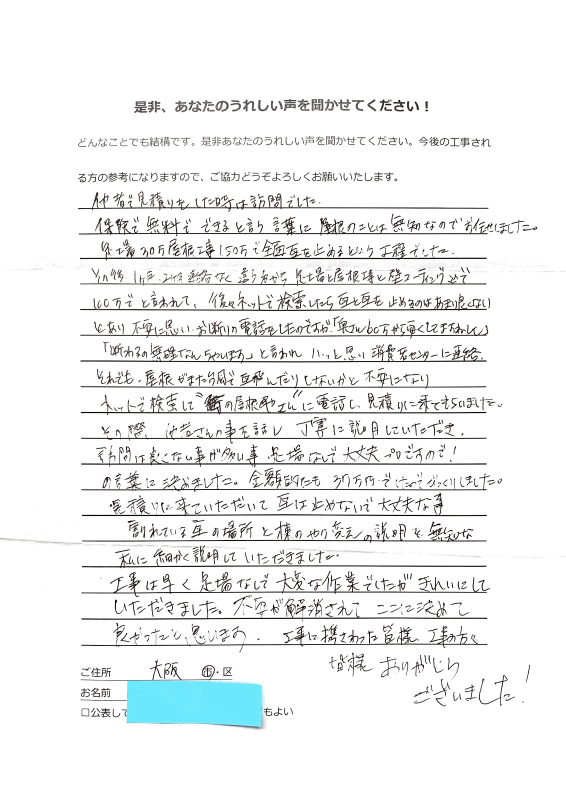 是非、あなたのうれしい声を聞かせてください！
どんなことでも結構です。是非あなたのうれしい声を聞かせてください。今後の工事され
る方の参考になりますので、ご協力どうぞよろしくお願いいたします。
他者で見積りをした時は訪問でした。
保険で無料でできると言う言葉に屋根のことは無知なのでお任せしました。
足場30万屋根工事150万で全面瓦を止めるという工程でした。
その後 1ヶ月、2ヶ月連絡なく違う方から足場と屋根棟と壁コーティング込で
100万で言われて、後々ネットで検索したら瓦と瓦を止めるのはあまり良くない
とあり不安に思いお断りの電話をしたのですが
「断わるの無理なんちゃいます」と言われ ハッと思い 消費者センターに連絡。
それでも、屋根がまた台風で瓦飛んだりしないかと不安になり
ネットで検索して"街の屋根やさん"に電話し、見積りに来てもらいました。
その際、他者さんの事を話し 丁寧に説明していただき、
訪問は良くない事が多い事 足場なしで大丈夫 プロですので！
の言葉に決めました。金額的にも 37万円でしたのでびっくりしました。
見積りに来ていただいて 瓦は止めないで大丈夫な事
割れている瓦の場所と棟のやり変えの説明と無知な
私に細かく説明していただきました。
工事は早く足場なしで大変な作業でしたがきれいにして
いただきました。不安が解消されて ここに決めて
良かったと思います。 工事に携さわった皆様 工事の方々
皆様 ありがとう
ございました！
ご住所 大阪 市・区
お名前
□公表して もよい